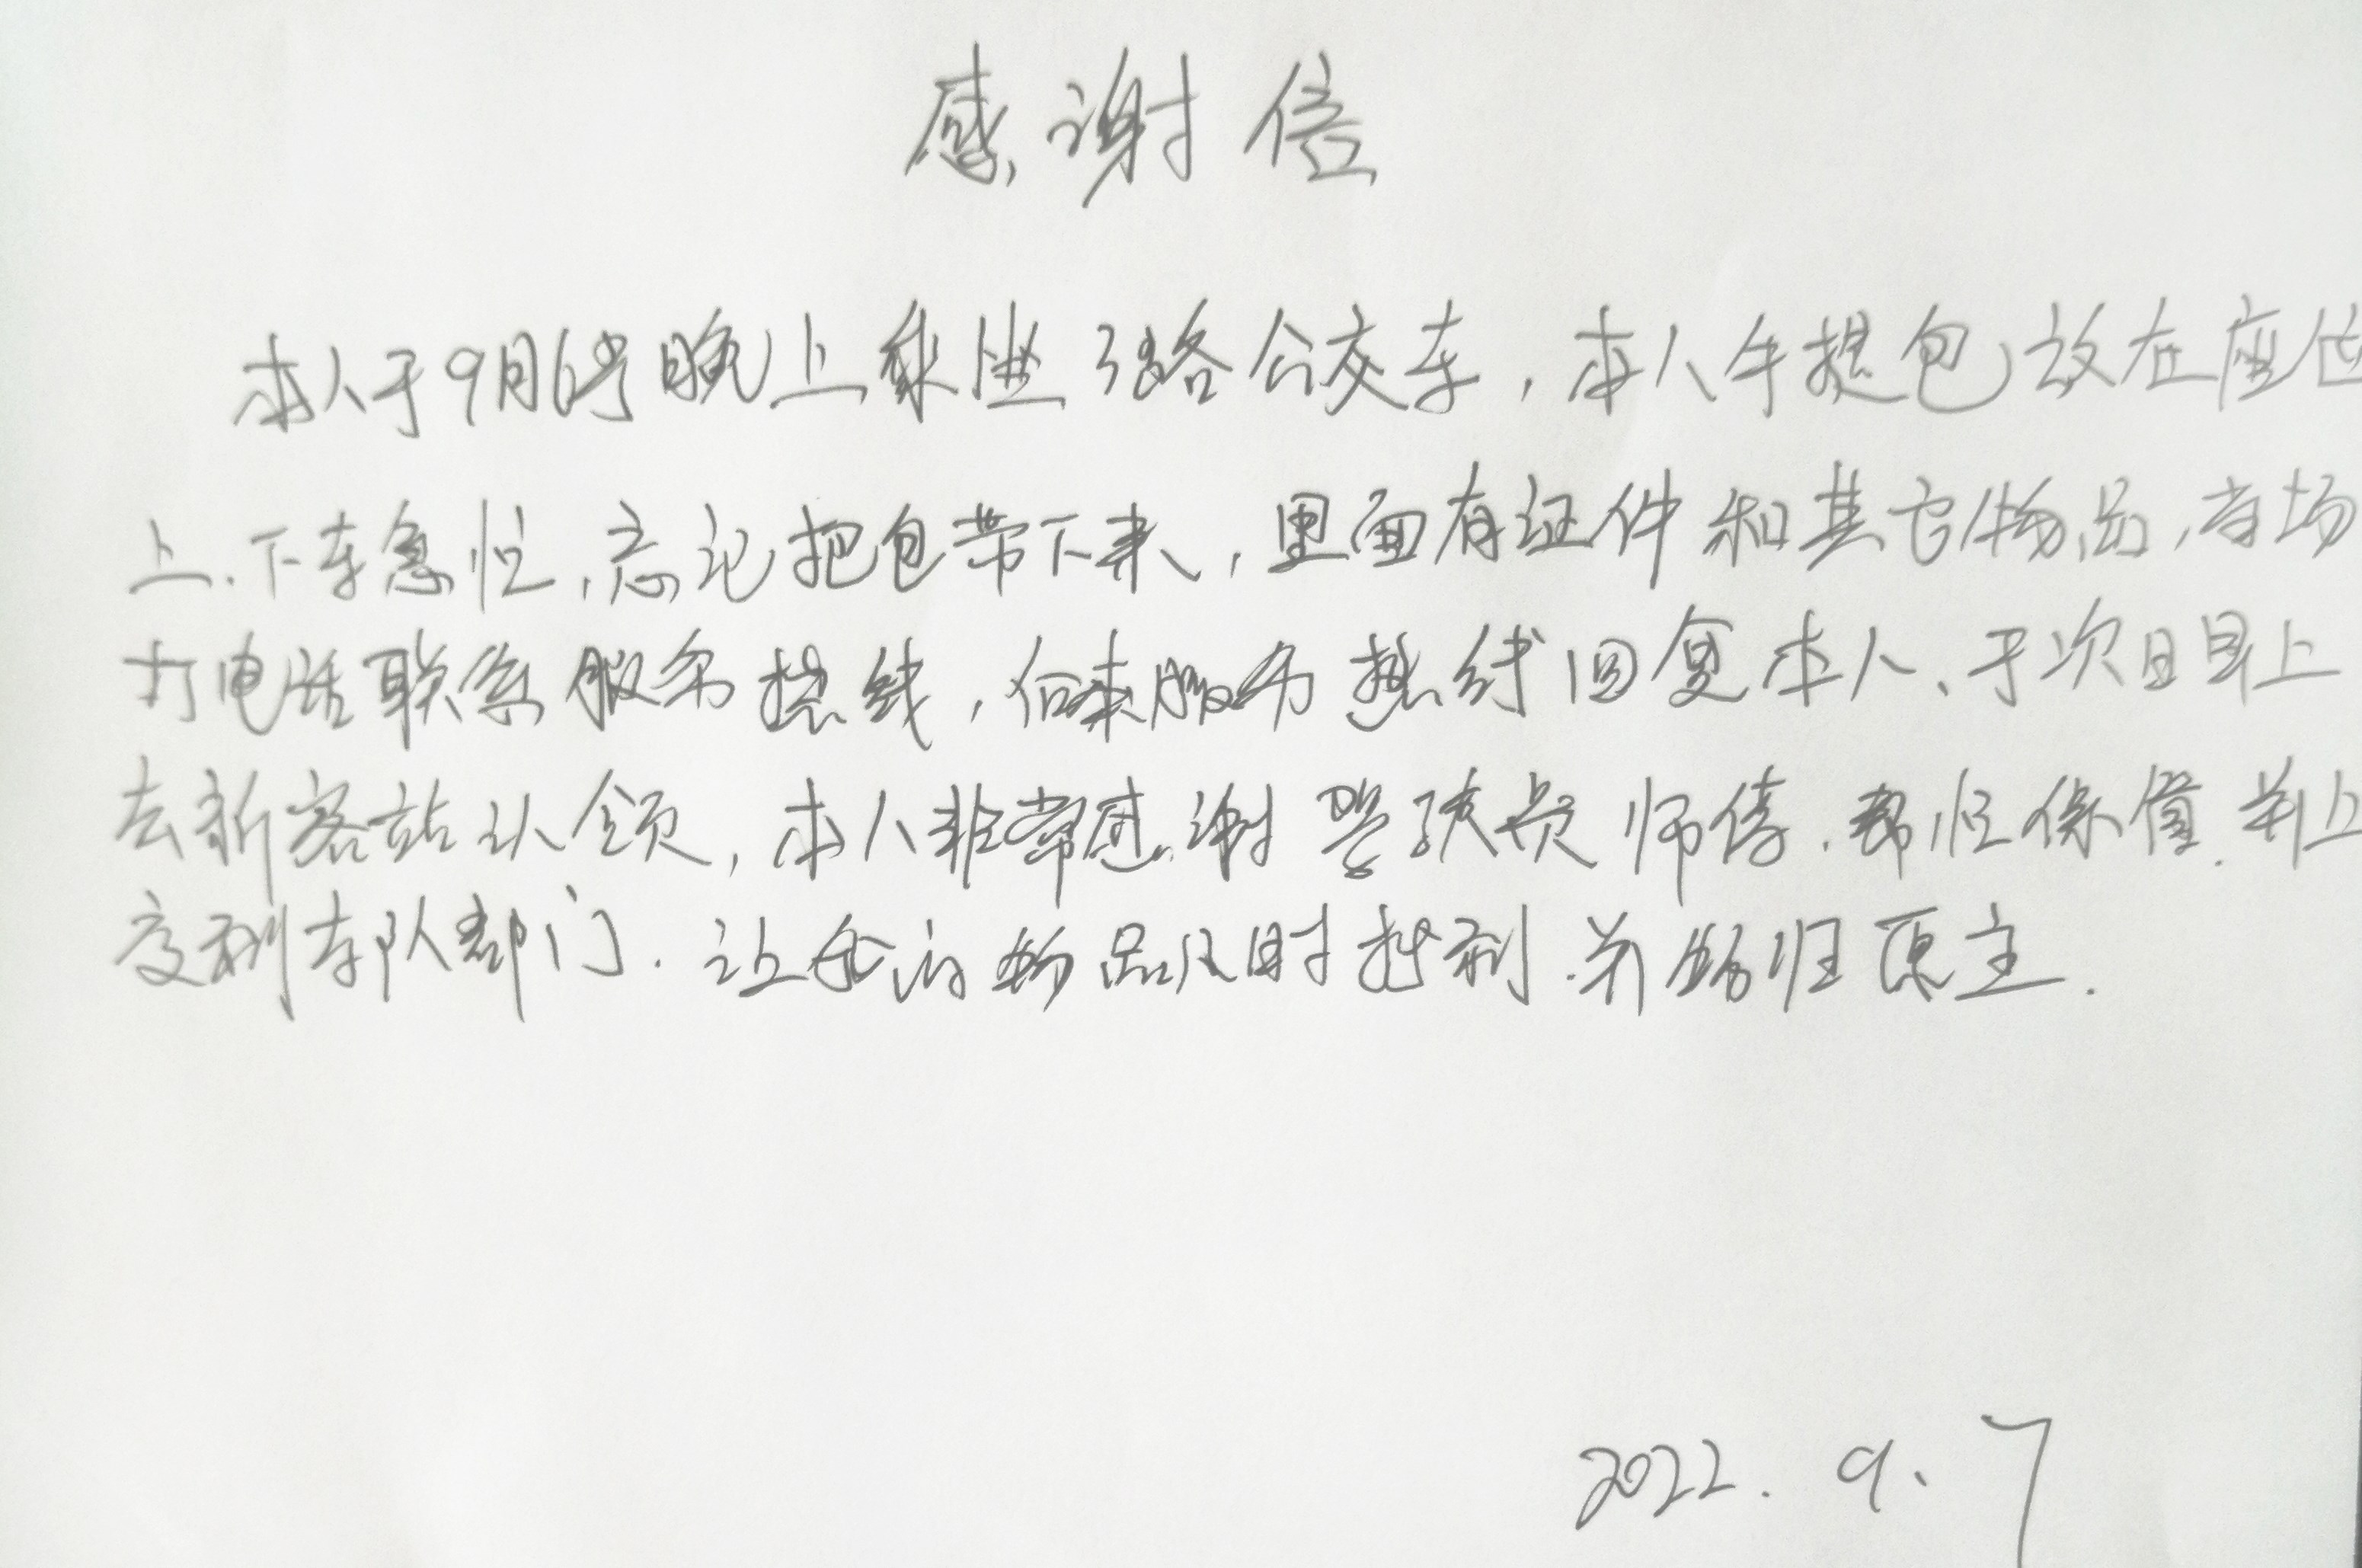 感谢信
本人于9月6号晚上乘坐38路公交车，本人手提包放在座位
上.下车急忙,忘记把包带下来,里面有证件和其它物品,当场
打电话联系服务热线,后来服务热线回复本人、于次日早上
去新客站认领,本人非常感谢驾驶员师傅.帮忙保管.并上
交到车队部门.让我的物品及时找到.并物归原主.
2022.9.7